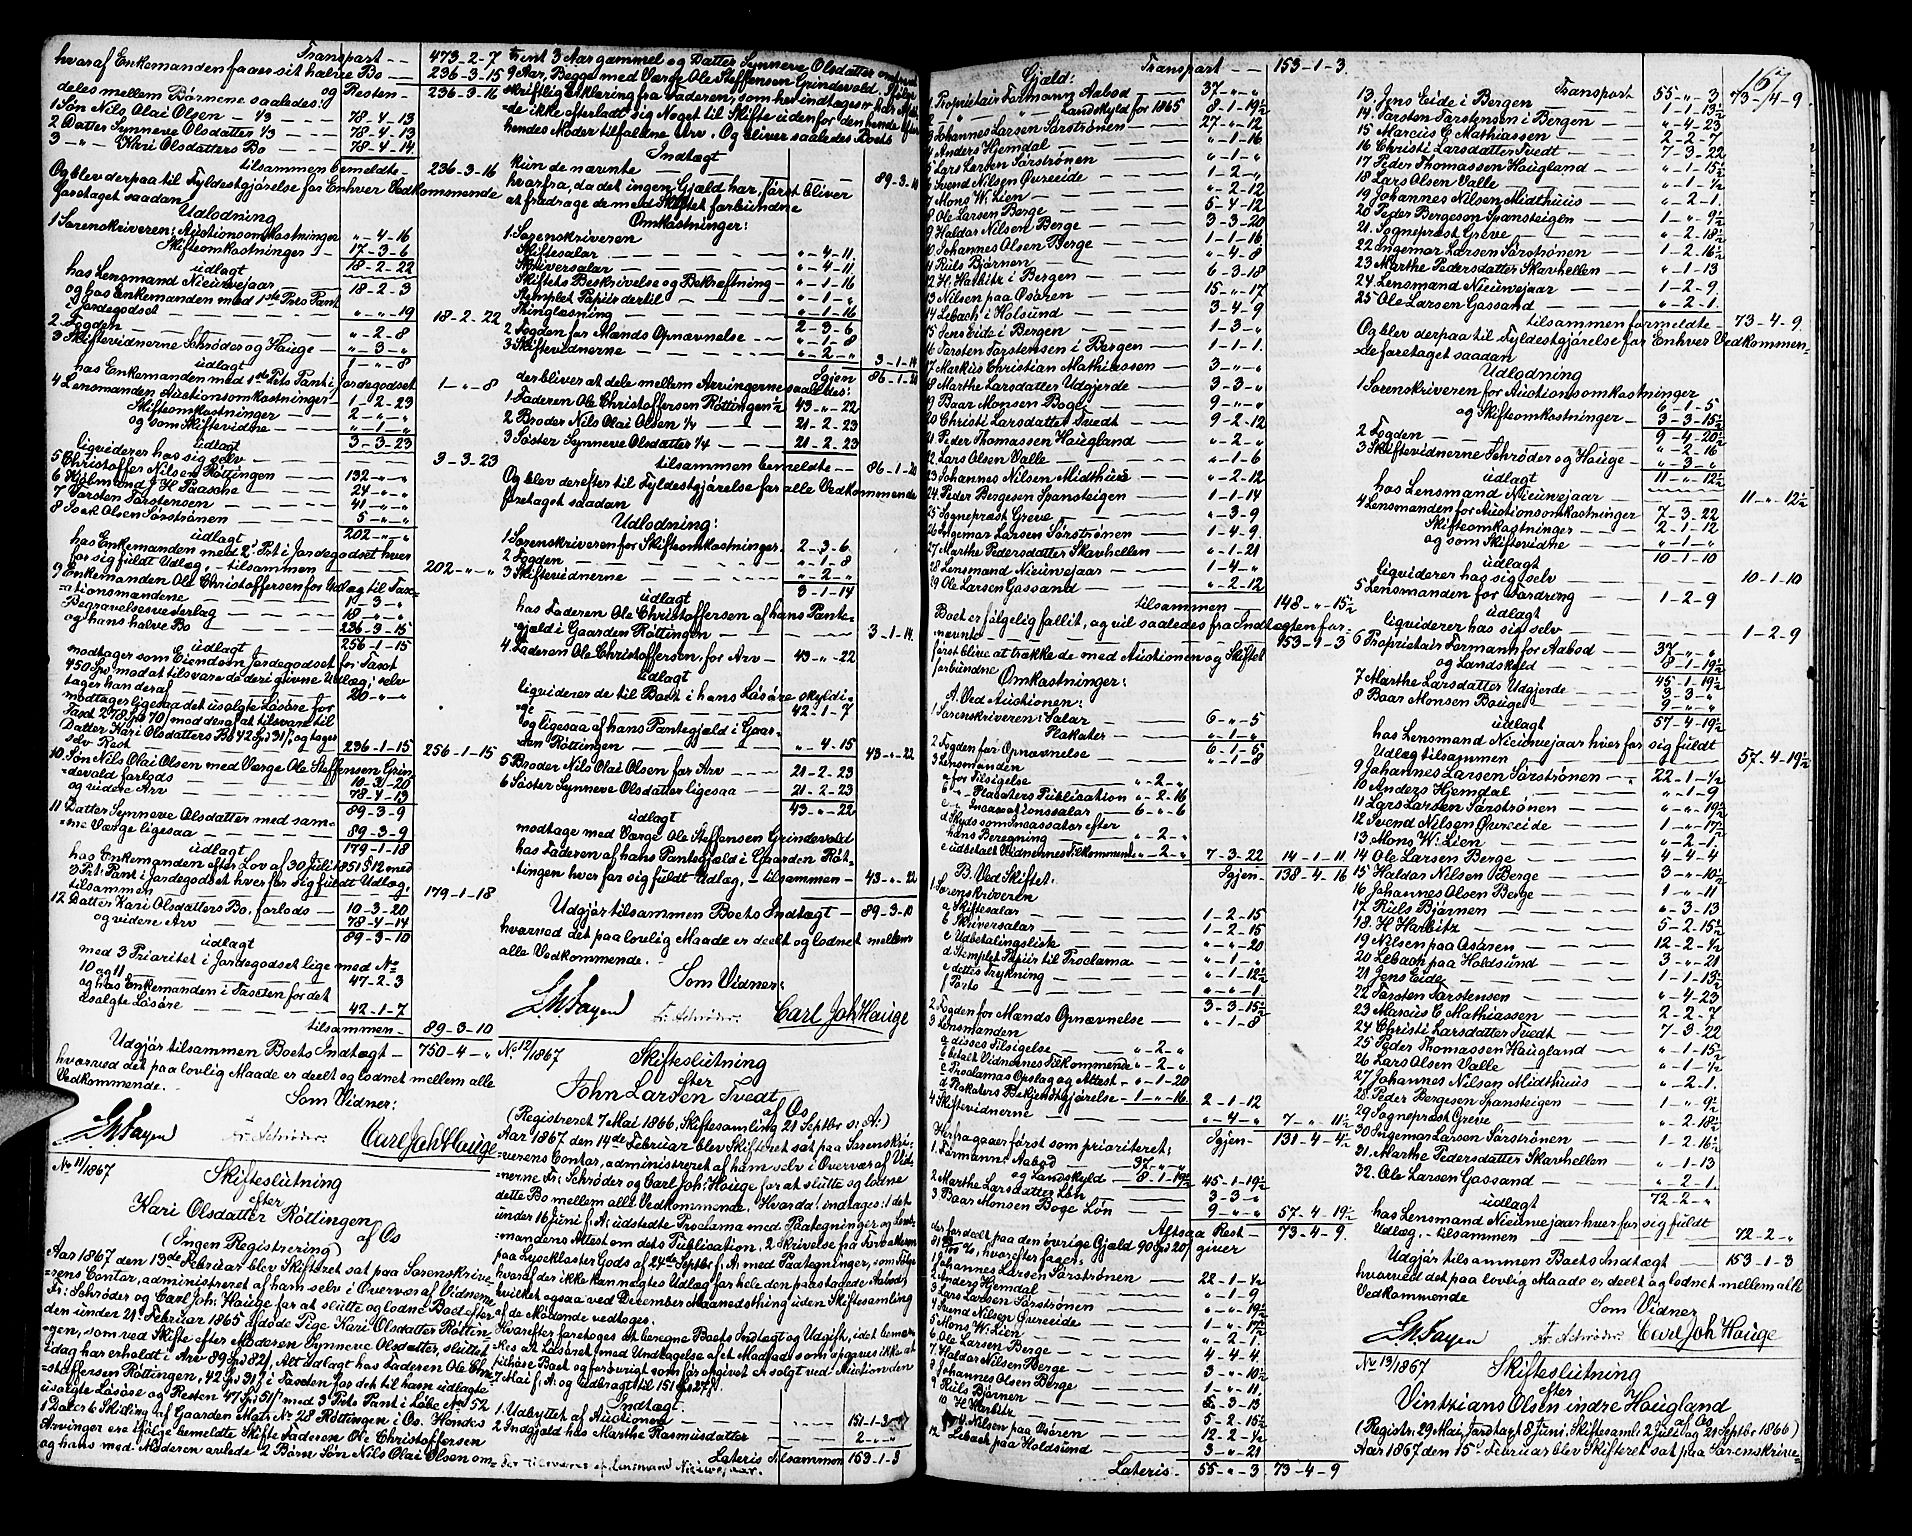 Transport -- 473-2-7
hvoraf Enkemanden faaer sit halve Bo -- 236-3-15
og Resten- 236-3-16
deles mellem Børnene saaledes:
1 Søn Nils Olai Olsen - 1/3 -- 78-4-13
2 Datter Synneve Olsdatter 1/3 -- 78-4-13
3 -"- Kari Olsdatters Bo -- 78-4-14
tilsammen bemeldte- 236-3-16
Og blev derpaa til Fyldestgjørelse for Enhver Vedkommende
foretaget saadan
Udlodning
1 Sorenskriveren: Auctionsomkostninger "-4-16
Skifteomkostninger 17-3-6
udlagt 18-2-22
hos Lensmand Nieuwejaar -- 18-2-3
og hos Enkemanden med 1ste Prts Pant
i Jordegodset -- "-"-19 18-2-22
2 Fogden -- "-2-8
3 Skiftevidnerne Schrøder og Hauge -- "-3-"
udlagt 1-"-8
hos Enkemanden med 1ste Prts Pant i Jordegodset 1-"-8
4 Lensmanden Auctionsomkostninger 1-2-23
Skifteomkostninger -- 2-"-"
og som Skiftevidne -- "-1-"
udlagt 3-3-23
liqviderer hos sig selv -- 3-3-23
5 Christoffer Nilsen Røttingen -- 132-"-"
6 Kjøbmand J H Paasche 24-"-"
7 Torsten Torstensen -- 41-"-"
8 Isak Olsen Sørstrønen -- 5-"-"
udlagt 202-"-"
hos Enkemanden med 2 Prt i Jordegodset hver
for sig fuldt Udlæg, - tilsammen -- 202-"-"
9 Enkemanden Ole Christoffersen for Udlæg til Tax-
ationsmændene 1-3-"
Begravelsesvederlag -- 18-"-"
og hans halve Bo -- 236-3-15
udlagt 256-1-15
modtager som Eiendom Jordegodset for Taxst
450 Spd mod at tilsvare de deri givne Udlæg; selv
tager han deraf -- 20-"-"
modtager ligesaa det usolgte Løsøre for
Taxt 278 Spd 70 ß mod deraf at tilsvare til
Datter Kari Olsdatters Bo 42 Spd 31 ß, og tages
selv Rest -- 236-1-15 256-1-15
10 Søn Nils Olai Olsen med Værge Ole Steffensen Grin-
devold forlods -- 10-3-20
og videre Arv -- 78-4-13
89-3-9
11 Datter Synneve Olsdatter med sam-
me Værge ligesaa -- 89-3-9
udlagt 179-1-18
hos Enkemanden efter Lov af 30 Juli 1851 § 12 med
3 Prt: Pant i Jordegodset hver for sig fuldt Udlæg,
tilsammen -- 179-1-18
12 Datter Kari Olsdatters Bo, forlods -- 10-3-20
og videre Arv -- 78-4-14
udlagt 89-3-10
med 3 Prioritet i Jordegodset lige med No
10 og 11 -- 47-2-3
og hos Enkemanden i Taxten for det
usolgte Løsøre -- 42-1-7
tilsammen- 89-3-10
Udgjør tilsammen Boets Indtægt - 750-4-"
hvorved det paa lovlig Maade er deelt og lodnet mellem alle
Vedkommende.
Som Vidner:
Fr. Schrøder. Carl Joh Hauge
No 11/1867 Skifteslutning
efter
Kari Olsdatter Røttingen
af Os
(Ingen Registrering)
Aar 1867 den 13de Februar blev Skifteret sat paa Sorenskrive-
rens Contor, administreret af ham selv i Overvær af Vidnerne
Fr: Schrøder og Carl Joh: Hauge for at slutte og lodne Boet efter
den under 21 Februar 1865 afdøde Pige Kari Olsdatter Røttin-
gen, som ved Skifte efter Moderen Synneve Olsdatter, sluttet
idag har erholdt i Arv 89 Spd 82 ß, Alt udlagt hos Faderen Ole Chri-
stoffersen Røttingen, 42 Spd 31 ß i Taxten for det til ham udlagte
usolgte Løsøre og Resten 47 Spd 51 ß med 3 Prts Pant i Løbe No 52
1 Daler 6 Skilling af Gaarden Matr: No 28 Røttingen i Os. Hendes
Arvinger ere ifølge bemeldte Skifte Faderen Ole Christoffersen
og hans med Moderen avlede 2 Børn Søn Nils Olai Olsen om-
trent 3 Aar gammel og Datter Synneve Olsdatter omtrent
9 Aar, Begge med Værge Ole Steffensen Grindevold. Ifølge
skriftlig Erklæring fra Faderen, som her indtages
de ikke efterladt sig Noget til Skifte uden for den hende efter
hendes Moder tilfaldne Arv. Og bliver saaledes Boets
Indtægt
kun de nævnte -- 89-3-10
hvorfra, da det ingen Gjæld har, først bliver
at fradrage de med Skiftet forbundne
Omkostninger:
1 Sorenskriveren
Skiftesalar -- "-4-11
Skriversalar -- "-4-11
Skiftets Beskrivelse og Bekræftning - "-1-16
Stemplet Papiir dertil -- "-1-"
Thinglæsning -- "-1-16
2-3-6
2 Fogden for Mænds Opnævnelse -- "-1-8
3 Skiftevidnerne -- "-2-" 3-1-14
Igjen 86-1-20
der bliver at dele mellem Arvingerne saaledes:
1 Faderen Ole Christoffersen Røttingen 1/2 43-"-22
2 Broder Nils Olai Olsen 1/4 -- 21-2-23
3 Søster Synneve Olsdatter 1/4 -- 21-2-23
tilsammen bemeldte -- 86-1-20
Og blev derefter til Fyldestgjørelse for alle Vedkommende
foretaget saadan
Udlodning:
1 Sorenskriveren for Skifteomkostninger 2-3-6
2 Fogden -- "-1-8
3 Skiftevidnerne -- "-2-"
udlagt 3-1-14
hos Faderen Ole Christoffersen af hans Pante-
gjæld i Gaarden Røttingen -- 3-1-14
4 Faderen Ole Christoffersen, for Arv - 43-"-22
udlagt
liqviderer de til Boet i hans Løsøre skyldi-
ge -- 42-1-7
og ligesaa af hans Pantegjæld i Gaar-
den Røttingen -- "-4-15 43-"-22
5 Broder Nils Olai Olsen for Arv -- 21-2-23
6 Søster Synneve Olsdatter ligesaa -- 21-2-23
udlagt 43-"-22
modtage med Værge Ole Steffensen Grindevold
hos Faderen af hans Pantegjæld i Gaarden Røt-
tingen hver for sig fuldt Udlæg, - tilsammen - 43-"-22
Udgjør tilsammen Boets Indtægt - 89-3-10
hvorved det paa lovlig Maade er deelt og lodnet mellem
alle Vedkommende.
Som Vidner:
Fr. Schrøder. Carl Joh Hauge
No 12/1867 Skifteslutning
efter
John Larsen Tvedt
af Os
(Registreret 7 Mai 1866, Skiftesamling 21 Septbr s: A:)
Aar 1867 den 14de Februar blev Skifteret sat paa Sorenskri-
verens Contor, administreret af ham selv i Overvær af Vid-
nerne Fr: Schrøder og Carl Joh: Hauge for at slutte og lodne
dette Bo mellem alle Vedkommende. Hvorda! indtages: 1 det
under 16 Juni f: A: udstedte Proclama med Paategninger og Lens-
mandens Attest om dets Publication, 2 Skrivelse fra Forvalteren
paa Lyseklosters Gods af 24de Septbr f: A: med Paategninger, som Følge
hvoraf der ikke kan nægtes Udlæg for hele den paastaaede Aabod,
hvilket ogsaa ved December Maanedsthing uden Skiftesamling
af de Mødende vedtoges.
Hvorefter foretoges at beregne Boets Indtægt og Udgift, idet bemær-
kes at Løsøret med Undtagelse af et Madfad som opgives ikke at
tilhøre Boet og forøvrigt som før opgivet er solgt ved Auctionen den
7 Mai f: A: og udbragt til 151 Spd 27 ß.
Indtægt:
1 Udbyttet af Auctionen -- 151-1-3
2 Indgjæld hos Marthe Rasmusdatter -- 2-"-"
Lateris tilsammen 153-1-3
der tilsvares af Lensmand Nieuwejaar.
Transport -- 153-1-3.
Gjæld:
1 Proprietair Formann Aabod -- 37-"-"
2 " " Landskyld for 1865 8-1-19½
3 Johannes Larsen Sørstrønen -- 27-"-12
4 Anders Hjemdal -- "-1-16
5 Lars Larsen Sørstrønen -- "-1-"
6 Svend Nilsen Øvreeide -- 1-2-"
7 Mons W: Lien -- "-2-12
8 Ole Larsen Berge -- 5-4-12
9 Haldor Nilsen Berge -- 3-3-20
10 Johannes Olsen Berge -- 1-1-16
11 Riils Bjørnen -- "-4-8
12 H. Harbitz i Bergen -- 6-3-18
13 Nilsen paa Osøren -- 15-"-17
14 Lebach i Holsund -- 3-4-9
15 Jens Eide i Bergen -- 1-3-"
16 Torsten Torstensen i Bergen -- 1-1-1.
17 Markus Christian Mathiassen -- 3-"-"
18 Marthe Larsdatter Udgjerde -- 3-3-"
19 Baar Monsen Boge -- 9-"-"
20 Christi Larsdatter Tvedt -- 9-2-12
21 Peder Thomassen Haugland -- "-2-"
22 Lars Olsen Valle -- "-1-6
23 Johannes Nilsen Midthuus -- "-2-12
24 Peder Bergesen Spansteigen -- 1-1-14
25 Sognepræst Greve -- "-3-9
26 Ingemar Larsen Sørstrønen -- 1-4-9.
27 Marthe Pedersdatter Skavhellen -- "-1-21
28 Lensmand Nieuwejaar -- 1-4-"
29 Ole Larsen Gassand -- "-2-12
tilsammen -- 148-"-15½
Boet er følgelig fallit, og vil saaledes fra Indtægten for-
nævnte -- 153-1-3
først blive at trække de med Auctionen og Skiftet
forbundne Omkostninger:
A. Ved Auctionen:
1 Sorenskriveren: Salar 6-"-5
Plakater -- "-1-"
6-1-5
2 Fogden for Opnævnelse "-1-8
3 Lensmanden
a for Tilsigelse "-2-"
b " Placaters Publication "-2-16
c " Incassationssalar 6-"-6
d Skyds som Incassator efter
hans Beregning -- "-2-"
e udbetalt Vidnernes Tilkommende "-2-" 7-3-22 14-1-11.
Igjen- 138-4-16
B. Ved Skiftet:
1 Sorenskriveren
a Skiftesalar -- 1-2-15
b Skriversalar -- 1-2-15
c Udbetalingsliste "-"-20
d Stemplet Papiir til Proclama "-1-"
e dettes Trykning -- "-1-12½
f Porto -- "-"-1
3-3-15½
2 Fogden for Mænds Opnævnelse "-1-8
3 Lensmanden
a disses Tilsigelse -- "-2-"
b betalt Vidnernes Tilkommende "-2-"
c Proclamas Opslag og Attest - "-1-20
d Plakaters Bekjendtgjørelse - 1-"-16 2-1-12
4 Skiftevidnerne -- "-4-" 7-"-11½
Igjen- 131-4-4½
Herfra gaaer først som prioriteret:
1. Formann: Aabod -- 37-"-"
og Landskyld -- 8-1-19½ 45-1-19½
2 Marthe Larsdatter Løn 3-3-"
3 Baar Monsen Boge Løn 9-"-" 57-4-19½
Altsaa Rest- 73-4-9.
der fordeelt paa den øvrige Gjæld 90 Spd 20 ß giver
, hvorefter faaer:
1 Johannes Larsen Sørstrønen 22-1-½
2 Anders Hjemdal -- "-1-9
3 Lars Larsen Sørstrønen "-"-19½
4 Svend Nilsen Øvreeide 1-"-17½
5 Mons W: Lien -- "-2-1.
6 Ole Larsen Berge 4-4-4.
7 Haldor Nilsen Berge -- 3-"-10½
8 Johannes Olsen Berge 1-"-11.
9 Riils Bjørnen -- "-3-13
10 H. Harbitz -- 5-2-15½
11 Nilsen paa Osøren 12-2-½
12 Lebach paa Holdsund 3-"-21
Lateris- 55-"-3 73-4-9
167
Transport 55-"-3 73-4-9
13 Jens Eide i Bergen -- 1-1-13½
14 Torsten Torstensen i Bergen -- "-4-23
15 Marcus C Mathiassen -- 2-2-7
16 Christi Larsdatter Tvedt -- 7-3-22
17 Peder Thomassen Haugland -- "-1-15½
18 Lars Olsen Valle -- "-1-½
19 Johannes Nilsen Midthuus -- "-2-1.
20 Peder Bergeson Spansteigen -- 1-"-9½
21 Sognepræst Greve -- "-2-18½
22 Ingemar Larsen Sørstrønen -- 1-2-16½
23 Marthe Pedersdatter Skavhellen -- "-1-13
24 Lensmand Nieuwejaar -- 1-2-9.
25 Ole Larsen Gassand -- "-2-1.
tilsammen formeldte- 73-4-9
Og blev derpaa til Fyldestgjørelse for Enhver Vedkommen-
de foretaget saadan
Udlodning
1 Sorenskriveren for Auctionsomkostninger
6-1-5
og Skifteomkostninger -- 3-3-15½
9-4-20½
2 Fogden -- "-2-16
3 Skiftevidnerne Schrøder og Hauge- "-3-"
udlagt 11-"-12½
hos Lensmand Nieuwejaar -- 11-"-12½
4 Lensmanden for Auctionsomkostninger 7-3-22
Skifteomkostninger -- 2-1-12
og som Skiftevidne -- "-1-"
udlagt 10-1-10
liqviderer hos sig selv -- 10-1-10
5 Lensmanden for Fordring 1-2-9
udlagt
liqviderer hos sig selv -- 1-2-9
6 Proprietair Formann for Aabod -- 37-"-"
og Landskyld -- 8-1-19½
45-1-19½
7 Marthe Larsdatter Udgjerde -- 3-3-"
8 Baar Monsen Bouge -- 9-"-"
udlagt 57-4-19½
hos Lensmand Nieuwejaar hver for sig fuldt
Udlæg tilsammen -- 57-4-19½
9 Johannes Larsen Sørstrønen -- 22-1-½
10 Anders Hjemdal -- "-1-9
11 Lars Larsen Sørstrønen "-"-19½
12 Svend Nilsen Øvreeide -- 1-"-17½
13 Mons W: Lien -- "-2-1.
14 Ole Larsen Berge -- 4-4-4
15 Haldor Nilsen Berge -- 3-"-10½
16 Johannes Olsen Berge -- 1-"-11
17 Riils Bjørnen -- "-3-13
18 H Harbitz -- 5-2-15½
19 Nilsen paa Osøren -- 12-2-½
20 Lebach paa Holdsund -- 3-"-21
21 Jens Eide -- 1-1-13½
22 Torsten Torstensen -- "-4-23
23 Marcus C Mathiassen -- 2-2-7
24 Christi Larsdatter Tvedt -- 7-3-22
25 Peder Thomassen Haugland -- "-1-15½
26 Lars Olsen Valle -- "-1-½
27 Johannes Nilsen Midthuus -- "-2-1.
28 Peder Bergesen Spansteigen -- 1-"-9½
29 Sognepræst Greve -- "-2-18½
30 Ingemar Larsen Sørstrønen -- 1-2-16½
31 Marthe Pedersdatter Skavhellen -- "-1-13
32. Ole Larsen Gassand -- "-2-1
udlagt 72-2-"
hos Lensmand Nieuwejaar hver for sig fuldt
Udlæg, - tilsammen -- 72-2-"
Udgjør tilsammen Boets Indtægt 153-1-3
hvorved det paa lovlig Maade er deelt og lodnet mellem alle
Vedkommende
Som Vidner
Fr. Schrøder Carl Joh Hauge
No 13/1867 Skifteslutning
efter
Vintzians Olsen indre Haugland
af Os
(Registr: 29 Mai, Jordtaxt 8 Juni, Skiftesaml: 2 Juli og 21 Septbr 1866)
Aar 1867 den 15de Februar blev Skifteret sat paa Sorenskrive-